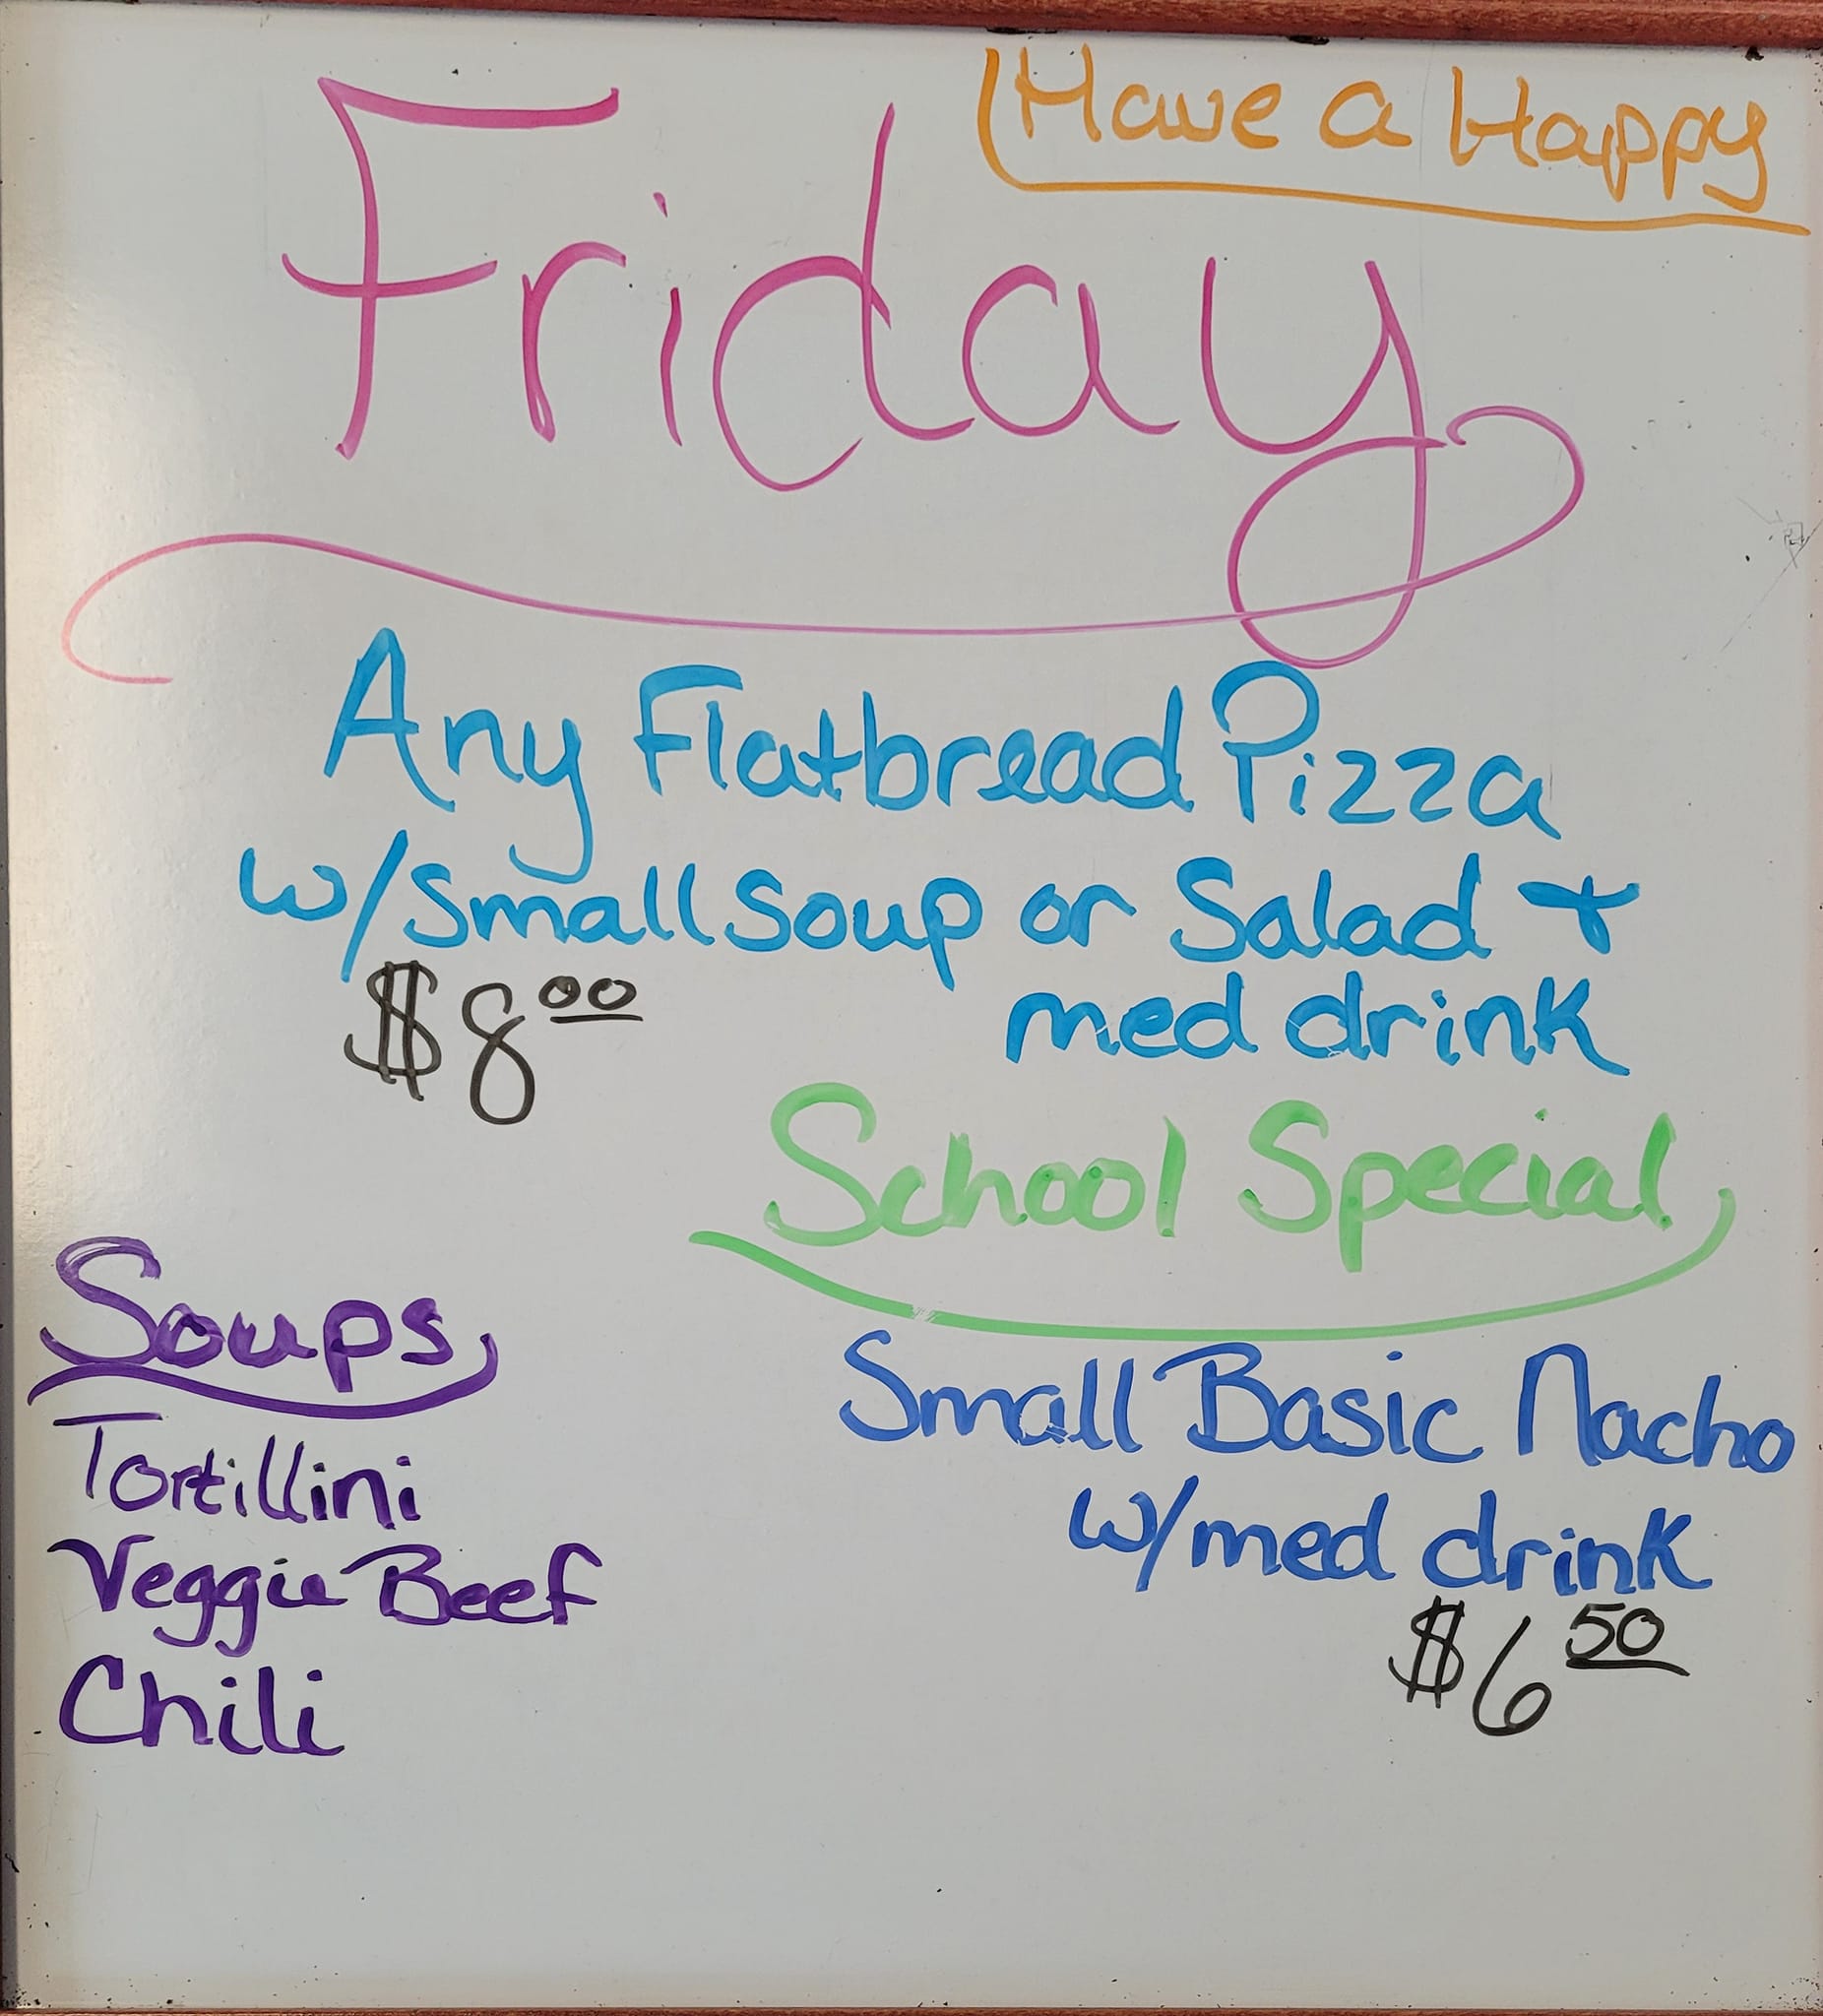 Have a Happy
Friday
Any Flatbread Pizza
w/small soup or Salad +
$8.00
med drink
School Special
Small Basic Nacho
w/med drink
$6.50
Soups
Tortillini
Veggie Beef
Chili